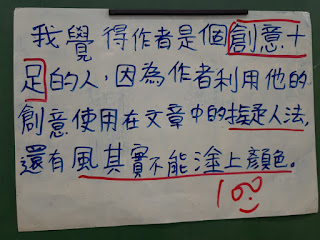 我覺得作者是個創意十
足的人，因為作者利用他的
創意使用在文章中的擬人法，
還有風其實不能塗上顏色。
100